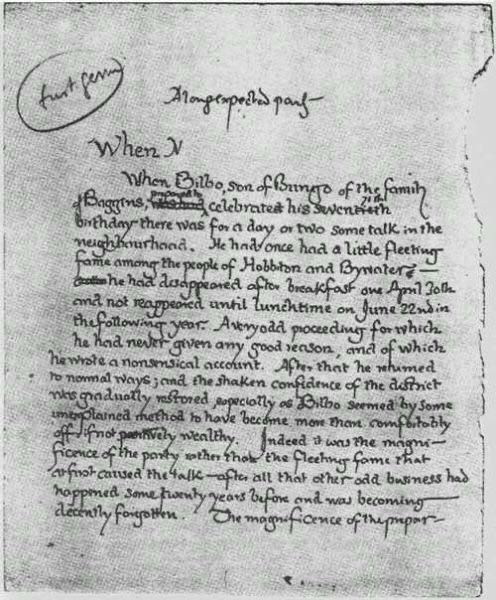 first germ
A long expected party
When N
When Bilbo, son of Bungo of the family
of Baggins, prepared to celebrate his seventieth 71st
birthday there was for a day or two some talk in the
neighbourhood. He had once had a little fleeting
fame among the people of Hobbiton and Bywater —
he had disappeared after breakfast one April 30th
and not reappeared until lunchtime on June 22nd in
the following year. A very odd proceeding for which
he had never given any good reason, and of which
he wrote a nonsensical account. After that he returned
to normal ways; and the shaken confidence of the district
was gradually restored, especially as Bilbo seemed by some
unexplained method to have become more than comfortably
off, if not positively wealthy. Indeed it was the magni-
ficence of the party rather than the fleeting fame that
at first caused the talk — after all that other odd business had
happened some twenty years before and was becoming
decently forgotten. The magnificence of the prepar-